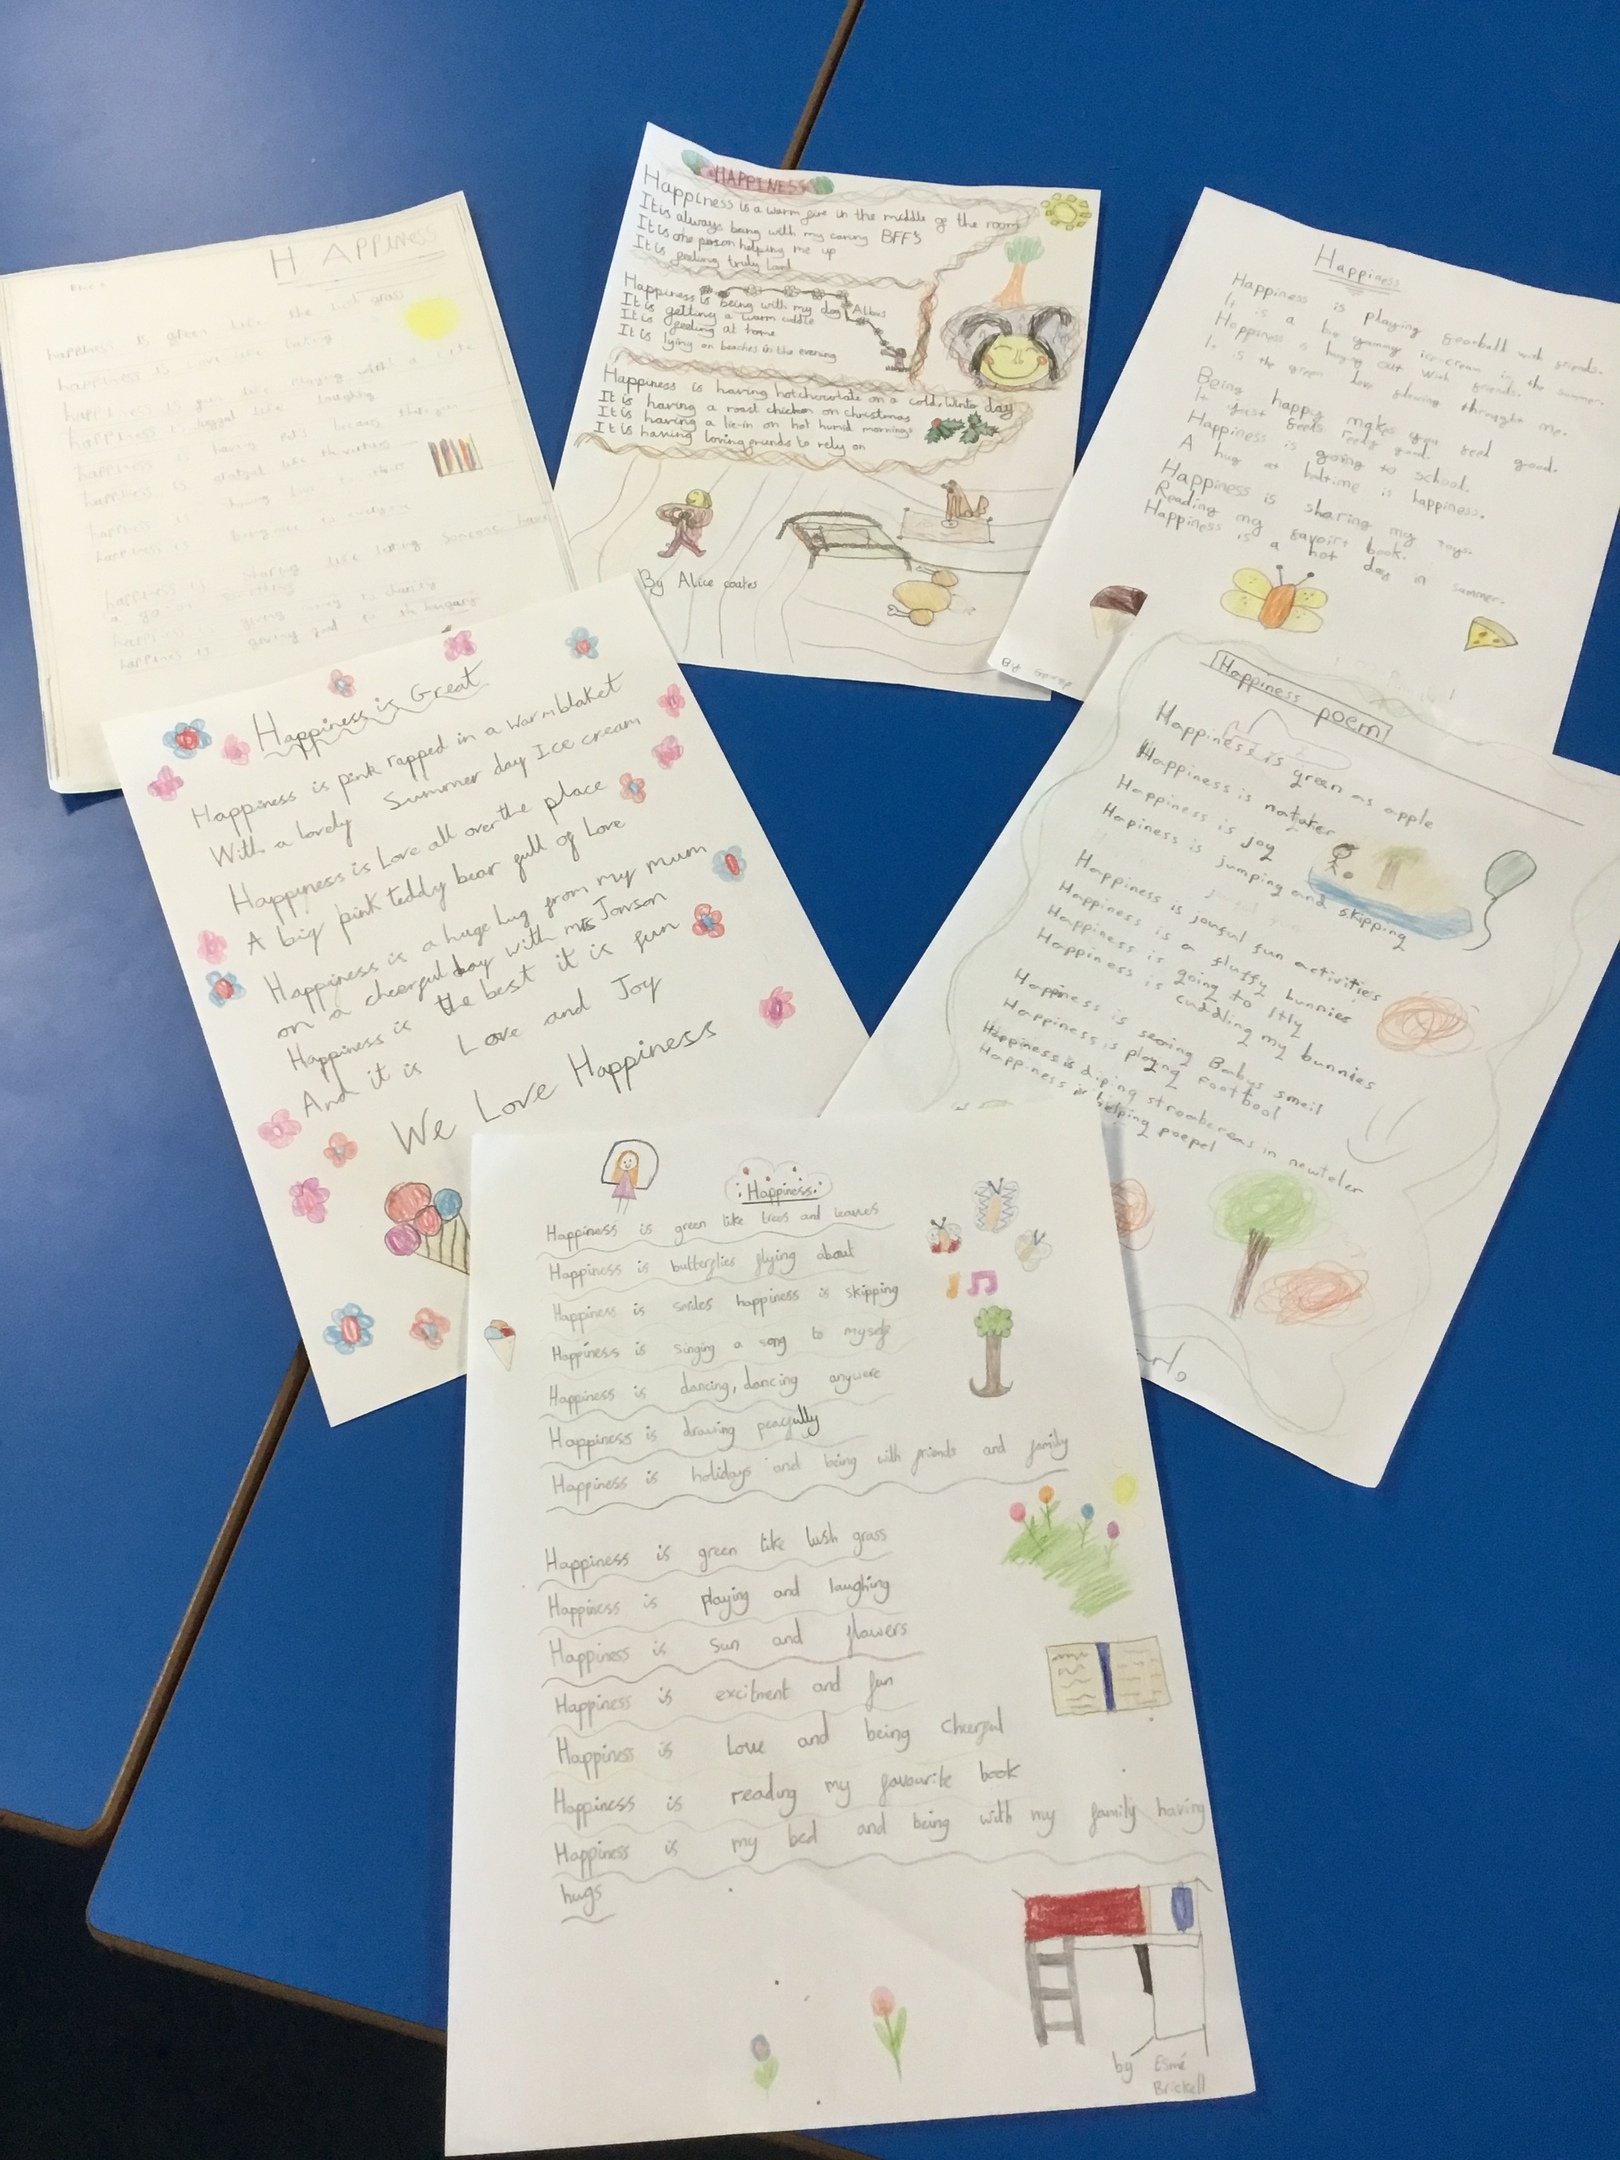 H APPINESS
happiness is green like the lush grass
happiness is
happiness is fun like playing with a
happiness is like laughing
happiness is having pet's because
happiness is
happiness is
happiness is
happiness is sharing like
a
happiness is giving money to charity
happiness is giving food to the hungary
HAPPINESS
Happiness is a warm fire in the middle of the room
It is always being with my caring BFF's
It is one person helping me up
It is feeling truly loved
Happiness is being with my dog Albus
It is getting a warm cuddle
It is feeling at home
It is lying on beaches in the evening
Happiness is having hotchocolate on a cold, winter day
It is having a roast chicken on christmas
It is having a lie-in on hot humid mornings
It is having loving friends to rely on
By Alice coates
Happiness
Happiness is playing goorball with friends.
It is a big yummy ice-cream in the summer.
Happiness is hanging out with friends.
It is the green love flowing throught me.
Being happy makes you feel good.
It just feels really good.
Happiness is going to school.
A hug at bedtime is happiness.
Happiness is sharing my toys.
Reading my favoirt book.
Happiness is a hot day in summer.
By
Happiness is Great
Happiness is pink rapped in a warm blaket
With a lovely Summer day Ice cream
Happiness is Love all over the place
A big pink teddy bear full of love
Happiness is a huge hug from my mum
on a cheerful day with mrs Jonson
Happiness is the best it is fun
And it is Love and Joy
We Love Happiness
Happiness poem
Happiness is green as apple
Happiness is natuker
Happiness is joy
Hapiness is jumping and skipping
Happiness is jouful fun activities
Happiness is a fluffy bunnies
Happiness is going to Itly
Happiness is cuddling my bunnies
Happiness is seeing Babys smeil
Happiness is playing Football
Happiness is diping stroabereas in newteler
Happiness is helping poepel
Happiness
Happiness is green like trees and leaves
Happiness is butterflies flying about
Happiness is smiles happiness is skipping
Happiness is singing a song to myself
Happiness is dancing, dancing anywere
Happiness is drawing peacfully
Happiness is holidays and being with friends and family
Happiness is green like lush grass
Happiness is playing and laughing
Happiness is sun and flowers
Happiness is excitment and fun
Happiness is love and being cheerful
Happiness is reading my favourite book
Happiness is my bed and being with my family having
hugs
by Esmé
Brickell